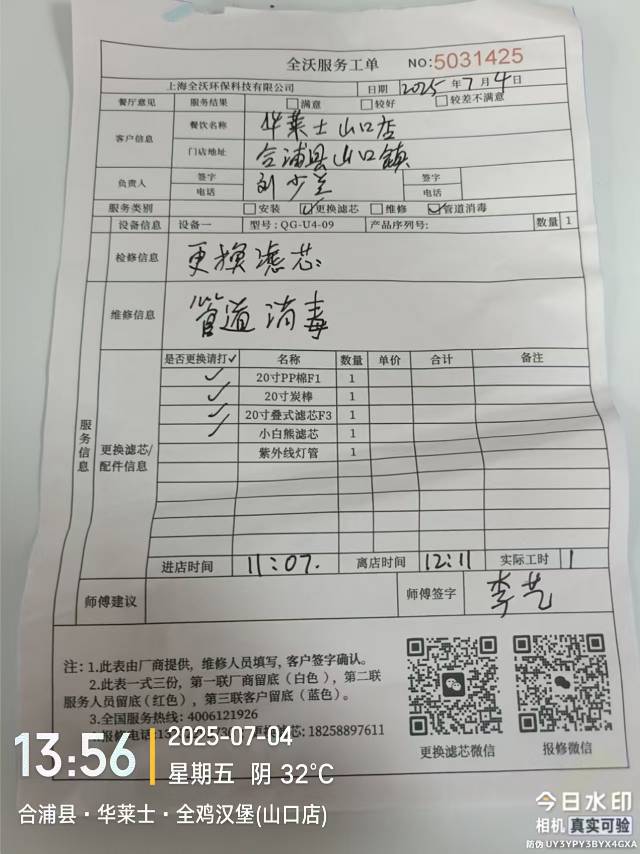 全沃服务工单 NO:5031425
上海全沃环保科技有限公司 日期 2025年7月4日
餐厅意见 服务结果 □满意 □较好 □较差不满意
客户信息 餐饮名称 华莱士山口店
门店地址 合浦县山口镇
负责人 签字 刘少兰 签字
电话 电话
服务类别 □安装 ☑更换滤芯 □维修 ☑管道消毒
设备信息 设备一 型号:QG-U4-09 产品序列号: 数量 1
检修信息 更换滤芯
维修信息 管道消毒
服务信息
更换滤芯/配件信息
是否更换请打✓ 名称 数量 单价 合计 备注
✓ 20寸PP棉F1 1
✓ 20寸炭棒 1
✓ 20寸叠式滤芯F3 1
✓ 小白熊滤芯 1
紫外线灯管 1
进店时间 11:07. 离店时间 12:11 实际工时 1
师傅建议 师傅签字 李艺
注:1.此表由厂商提供，维修人员填写，客户签字确认。
2.此表一式三份，第一联厂商留底（白色），第二联
服务人员留底(红色），第三联客户留底（蓝色）。
3.全国服务热线: 4006121926
报修电话:13 滤芯: 18258897611
更换滤芯微信 报修微信
13:56 2025-07-04
星期五 阴 32°C
合浦县·华莱士·全鸡汉堡(山口店)
今日水印
相机 真实可验
防伪 UY3YPY3BYX4GXA